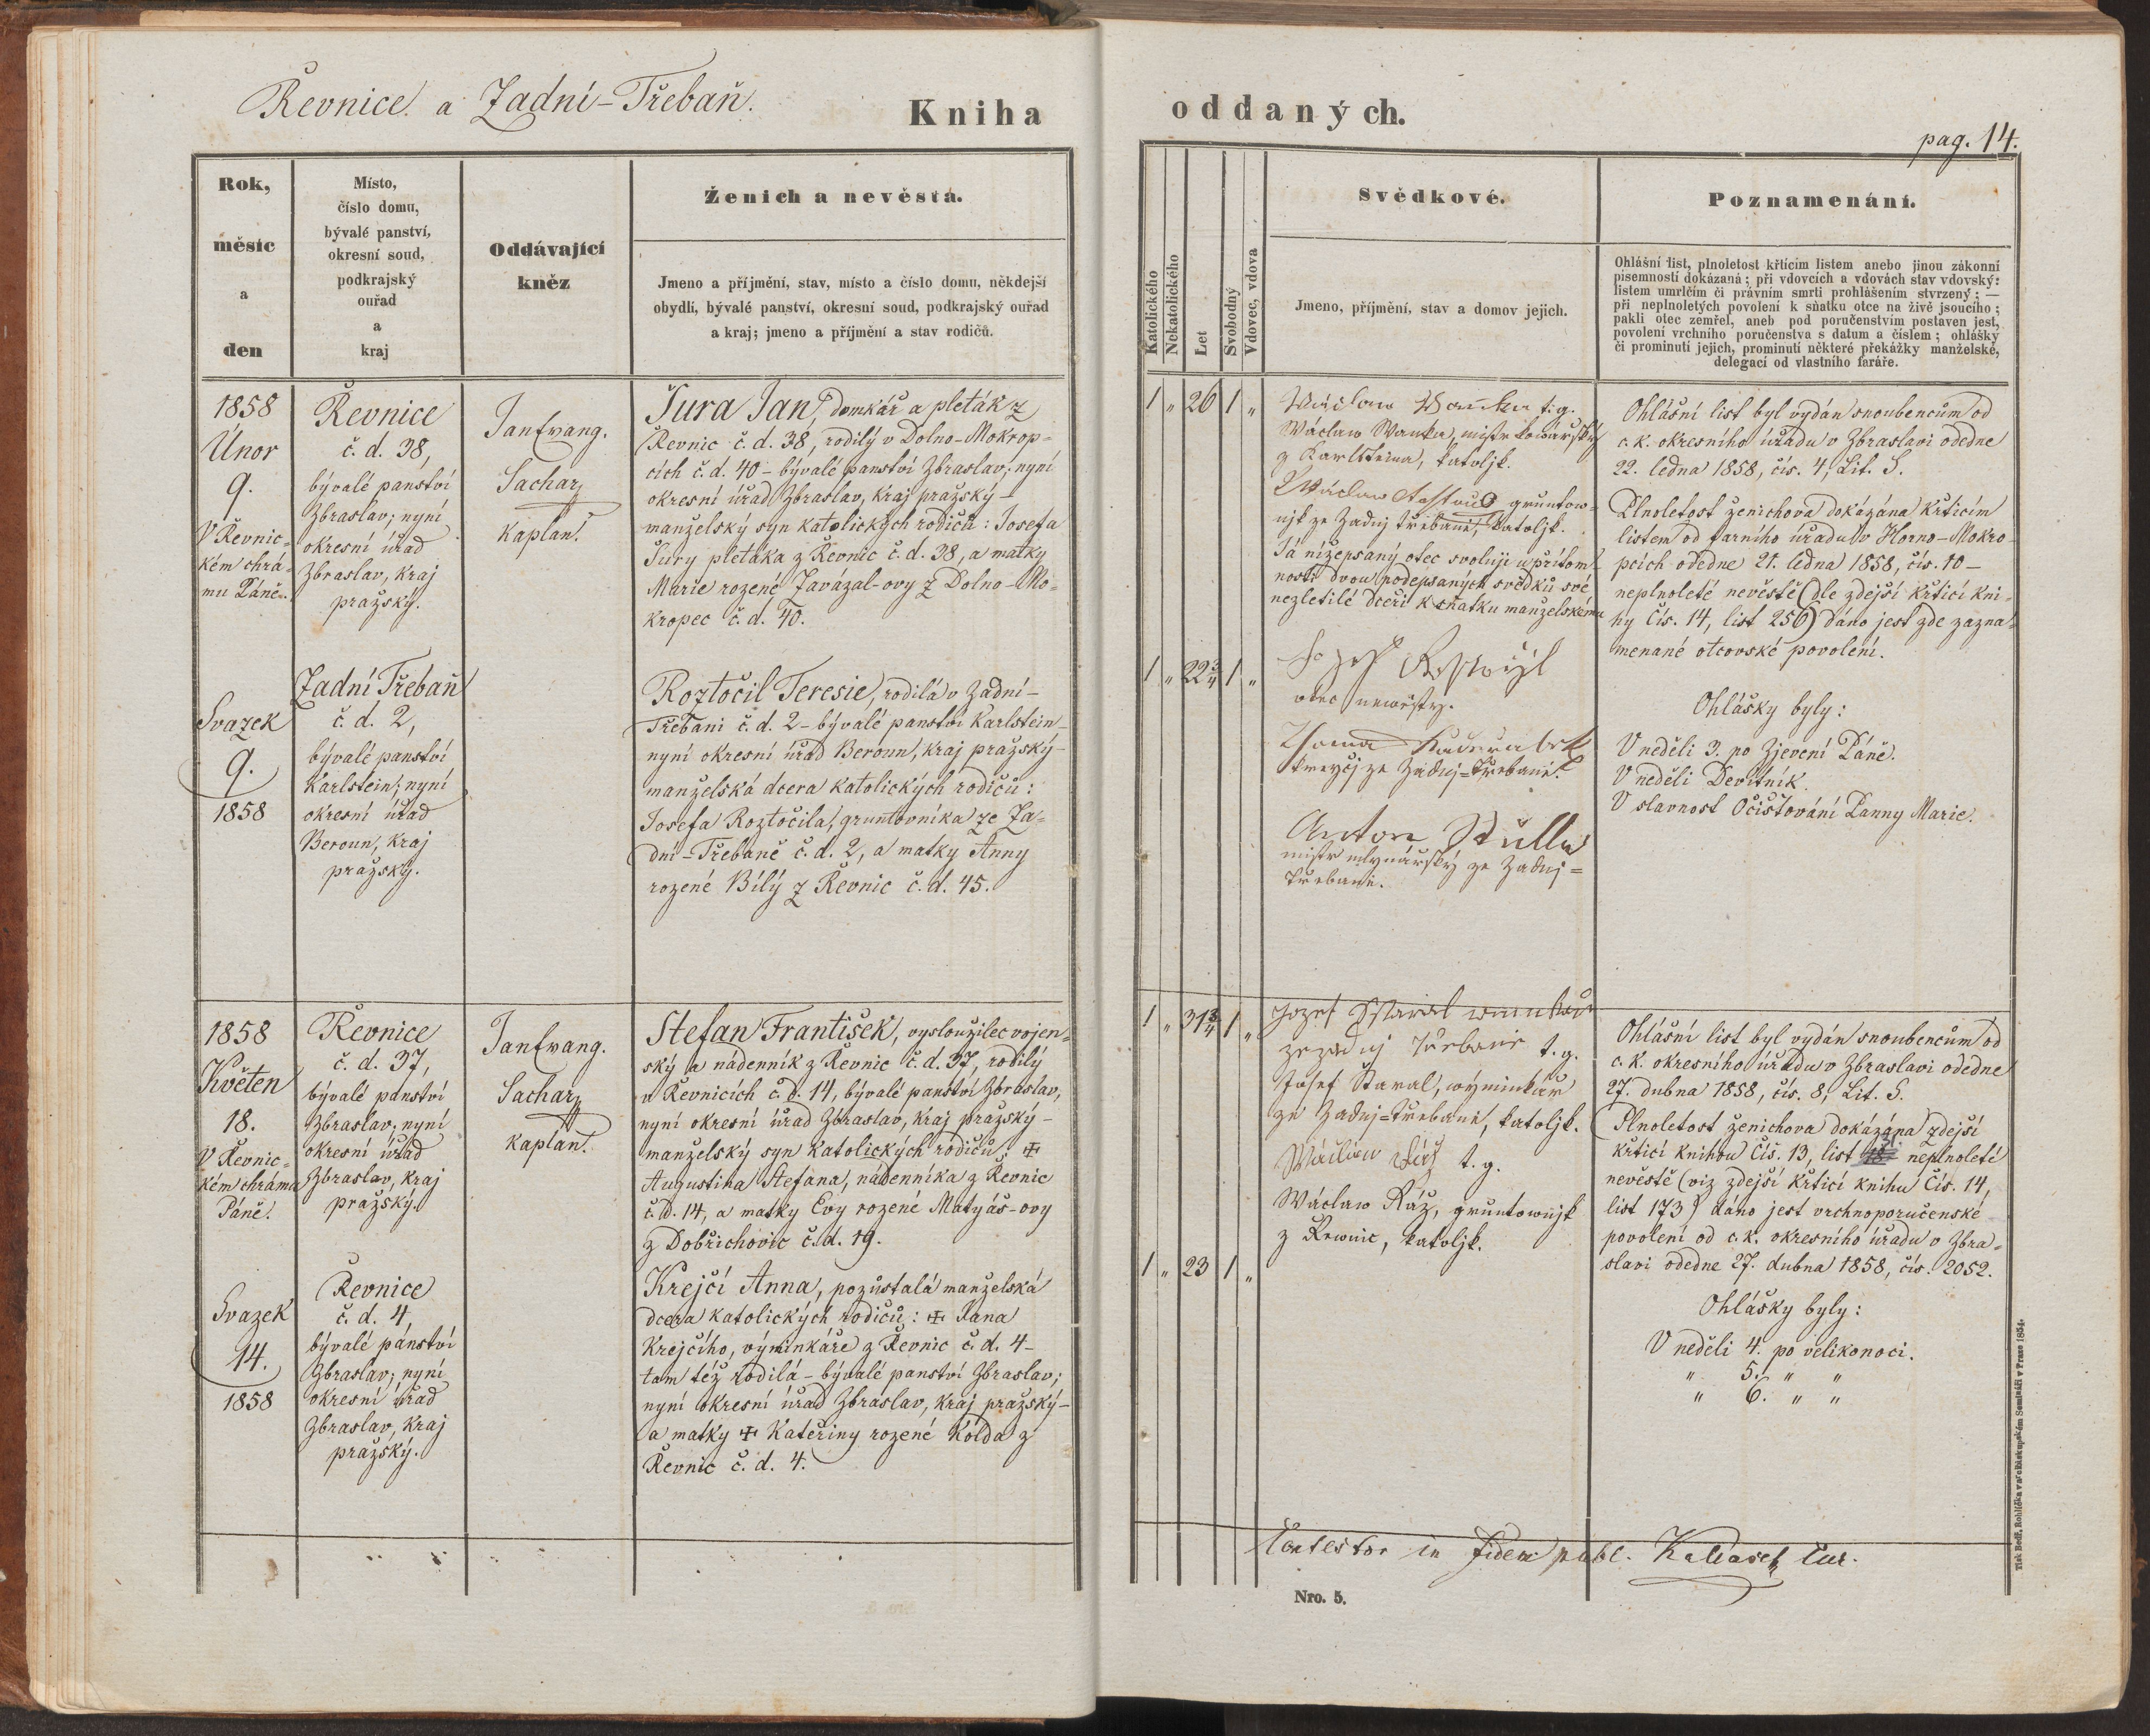 Řevnice a Zadní-Třebaň.
Kniha
oddaných.
pag. 14.
Rok,
měsíc
a
den
Místo,
číslo domu,
bývalé panství,
okresní soud,
podkrajský
ouřad
a
kraj
Oddávající
kněz
Ženich a nevěsta.
Jmeno a příjmění, stav, místo a číslo domu, někdejší
obydlí, bývalé panství, okresní soud, podkrajský ouřad
a kraj; jmeno a příjmění a stav rodičů.
Katolického
Nekatolického
Let
Svobodný
Vdovec, vdova
Svědkové.
Jmeno, příjmění, stav a domov jejich.
Poznamenání.
Ohlášní list, plnoletost křtícím listem anebo jinou zákonní
písemností dokázaná; při vdovcích a vdovách stav vdovský:
listem umrlčím či právním smrti prohlášením stvrzený; —
při neplnoletých povolení k sňatku otce na živě jsoucího;
pakli otec zemřel, aneb pod poručenstvím postaven jest,
povolení vrchního poručenstva s datum a číslem; ohlášky
či prominutí jejich, prominutí některé překážky manželské,
delegací od vlastního faráře.
1858
Únor
9.
V Řevnic-
kém chrá-
mu Páně.
Svazek
9.
1858
Řevnice
č. d. 38,
bývalé panství
Zbraslav; nyní
okresní úřad
Zbraslav, kraj
pražský.
Zadní Třebaň
č. d. 2,
bývalé panství
Karlstein; nyní
okresní úřad
Beroun, kraj
pražský.
Jan Evang.
Sachar,
kaplan.
Jura Jan, domkář a pleták z
Řevnic č. d. 38, rodilý v Dolno-Mokrop=
cích č. d. 40 – bývalé panství Zbraslav, nyní
okresní úřad Zbraslav, kraj pražský –
manželský syn katolických rodičů: Josefa
Jury pletáka z Řevnic č. d. 38, a matky
Marie rozené Zavázal-ovy z Dolno-Mo=
kropec č. d. 40.
Roztočil Teresie, rodilá v Zadní-
Třebani č. d. 2 – bývalé panství Karlstein
nyní okresní úřad Beroun, kraj pražský –
manželská dcera katolických rodičů:
Josefa Roztočila, gruntovníka ze Za=
dní-Třebaně č. d. 2, a matky Anny
rozené Bílý z Řevnic č. d. 45.
1 „ 26 1 „
1 „ 22¾ 1 „
Wáclaw Wanka t. g.
Wáclaw Wanka, mistr kowářský
z Karlsteina, katoljk.
Wáclaw gruntow=
njk ze Zadnj Třebaně, katoljk.
Já nížepsaný otec svoluji u přítom-
nosti dvou podepsaných svědků své
nezletilé dceři k sňatku manželskému
otec newěsty.
kreyčj ze Zadnj=Třebaně.
Anton
mistr mlynářský ze Zadnj=
Třebaně.
Ohlášní list byl vydán snoubencům od
c. k. okresního úřadu v Zbraslavi odedne
22. ledna 1858, čís. 4, Lit. S.
Plnoletost ženichova dokázána křticím
listem od farního úřadu v Horno-Mokro-
pcích odedne 21. ledna 1858, čís. 10 –
neplnoleté nevěstě (dle zdejší křticí kni-
hy Čís. 14, list 256) dáno jest zde zazna-
menané otcovské povolení.
Ohlášky byly:
V neděli 3. po Zjevení Páně.
V neděli Devítník.
V slavnost Očištování Panny Marie.
1858
Květen
18.
V Řevnic-
kém chrámu
Páně.
Svazek
14.
1858
Řevnice
č. d. 37,
bývalé panství
Zbraslav; nyní
okresní úřad
Zbraslav, kraj
pražský.
Řevnice
č. d. 4,
bývalé panství
Zbraslav; nyní
okresní úřad
Zbraslav, kraj
pražský.
Jan Evang.
Sachar,
kaplan.
Stefan František, vysloužilec vojen-
ský a nádenník z Řevnic č. d. 37, rodilý
v Řevnicích č. d. 14, bývalé panství Zbraslav,
nyní okresní úřad Zbraslav, kraj pražský –
manželský syn katolických rodičů: ✝
Augustina Stefana, nádenníka z Řevnic
č. d. 14, a matky Evy rozené Matyáš-ovy
z Dobřichovic č. d. 19.
Krejčí Anna, pozůstalá manželská
dcera katolických rodičů: ✝ Jana
Krejčího, výminkáře z Řevnic č. d. 4 –
tam též rodilá – bývalé panství Zbraslav;
nyní okresní úřad Zbraslav, kraj pražský –
a matky ✝ Kateřiny rozené Kolda z
Řevnic č. d. 4.
1 „ 31¾ 1 „
1 „ 23 1 „
Jozef
ze zadnj Třebaně t. g.
Josef Staral, wýminkář
ze Zadnj=Třebaně, katoljk.
Wáclaw Ráž t. g.
Wáclaw Ráž, gruntownjk
z Řewnic, katoljk.
Ohlášní list byl vydán snoubencům od
c. k. okresního úřadu v Zbraslavi odedne
27. dubna 1858, čís. 8, Lit. S.
Plnoletost ženichova dokázána zdejší
křticí knihou Čís. 13, list neplnoleté
nevěstě (viz zdejší křticí knihu Čís. 14,
list 173) dáno jest vrchnoporučenské
povolení od c. k. okresního úřadu v Zbra-
slavi odedne 27. dubna 1858, čís. 2052.
Ohlášky byly:
V neděli 4. po velikonoci.
„ 5. „ „
„ 6. „ „
Contestor in fidem publ. Cur.
Nro. 5.
Tisk Bedř. Rohlíčka v arcibiskupském Semináři v Praze 1854.